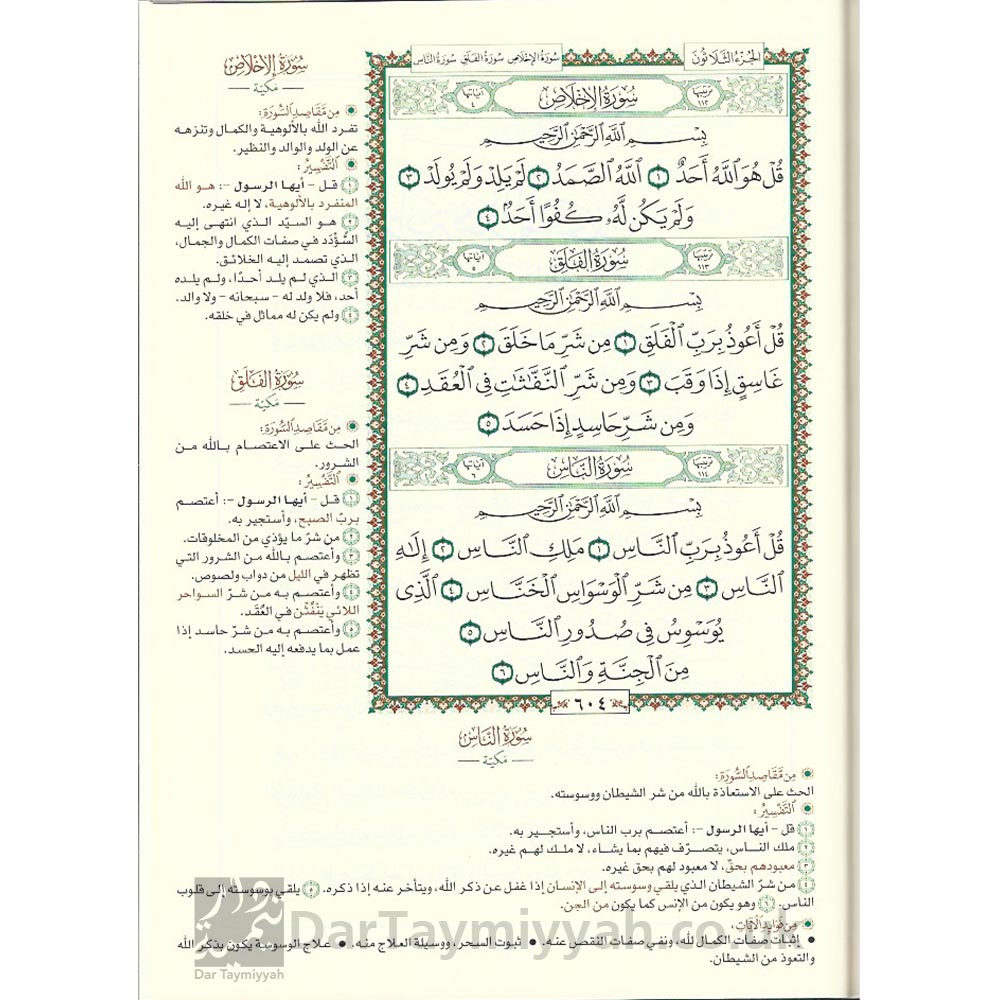 الجزء الثلاثون
سورة الإخلاص سورة الفلق سورة الناس
ترتيبها ١١٢
سُورَةُ الإِخْلَاصِ
آياتها ٤
بِسْمِ ٱللَّهِ ٱلرَّحْمَٰنِ ٱلرَّحِيمِ
قُلْ هُوَ ٱللَّهُ أَحَدٌ ١ ٱللَّهُ ٱلصَّمَدُ ٢ لَمْ يَلِدْ وَلَمْ يُولَدْ ٣
وَلَمْ يَكُن لَّهُۥ كُفُوًا أَحَدٌۢ ٤
ترتيبها ١١٣
سُورَةُ الفَلَقِ
آياتها ٥
بِسْمِ ٱللَّهِ ٱلرَّحْمَٰنِ ٱلرَّحِيمِ
قُلْ أَعُوذُ بِرَبِّ ٱلْفَلَقِ ١ مِن شَرِّ مَا خَلَقَ ٢ وَمِن شَرِّ
غَاسِقٍ إِذَا وَقَبَ ٣ وَمِن شَرِّ ٱلنَّفَّٰثَٰتِ فِى ٱلْعُقَدِ ٤
وَمِن شَرِّ حَاسِدٍ إِذَا حَسَدَ ٥
ترتيبها ١١٤
سُورَةُ النَّاسِ
آياتها ٦
بِسْمِ ٱللَّهِ ٱلرَّحْمَٰنِ ٱلرَّحِيمِ
قُلْ أَعُوذُ بِرَبِّ ٱلنَّاسِ ١ مَلِكِ ٱلنَّاسِ ٢ إِلَٰهِ
ٱلنَّاسِ ٣ مِن شَرِّ ٱلْوَسْوَاسِ ٱلْخَنَّاسِ ٤ ٱلَّذِى
يُوَسْوِسُ فِى صُدُورِ ٱلنَّاسِ ٥
مِنَ ٱلْجِنَّةِ وَٱلنَّاسِ ٦
٦٠٤
سُورَةُ الإِخْلَاصِ
مَكيّة
مِن مَّقَاصِدِ السُّورَةِ:
تفرد الله بالألوهية والكمال وتنزهه
عن الولد والوالد والنظير.
التَّفْسِيرُ:
١ قل - أيها الرسول -: هو الله
المنفرد بالألوهية، لا إله غيره.
٢ هو السيّد الذي انتهى إليه
السُّؤْدَد في صفات الكمال والجمال،
الذي تصمد إليه الخلائق.
٣ الذي لم يلد أحدًا، ولم يلده
أحد، فلا ولد له - سبحانه - ولا والد.
٤ ولم يكن له مماثل في خلقه.
سُورَةُ الفَلَقِ
مَكيّة
مِن مَّقَاصِدِ السُّورَةِ:
الحث على الاعتصام بالله من
الشرور.
التَّفْسِيرُ:
١ قل - أيها الرسول -: أعتصم
بربّ الصبح، وأستجير به.
٢ من شرّ ما يؤذي من المخلوقات.
٣ وأعتصم بالله من الشرور التي
تظهر في الليل من دواب ولصوص.
٤ وأعتصم به من شرّ السواحر
اللائي يَنْفُثْن في العُقَد.
٥ وأعتصم به من شرّ حاسد إذا
عمل بما يدفعه إليه الحسد.
سُورَةُ النَّاسِ
مَكيّة
مِن مَّقَاصِدِ السُّورَةِ:
الحث على الاستعاذة بالله من شر الشيطان ووسوسته.
التَّفْسِيرُ:
١ قل - أيها الرسول -: أعتصم برب الناس، وأستجير به.
٢ ملك الناس، يتصرّف فيهم بما يشاء، لا ملك لهم غيره.
٣ معبودهم بحقّ، لا معبود لهم بحق غيره.
٤ من شرّ الشيطان الذي يلقي وسوسته إلى الإنسان إذا غفل عن ذكر الله، ويتأخر عنه إذا ذكره. ٥ يلقي بوسوسته إلى قلوب
الناس. ٦ وهو يكون من الإنس كما يكون من الجن.
مِن فَوَائِدِ الآيَاتِ:
• إثبات صفات الكمال لله، ونفي صفات النقص عنه. • ثبوت السحر، ووسيلة العلاج منه. • علاج الوسوسة يكون بذكر الله
والتعوذ من الشيطان.
DarTaymiyyah.co.uk
Dar Taymiyyah